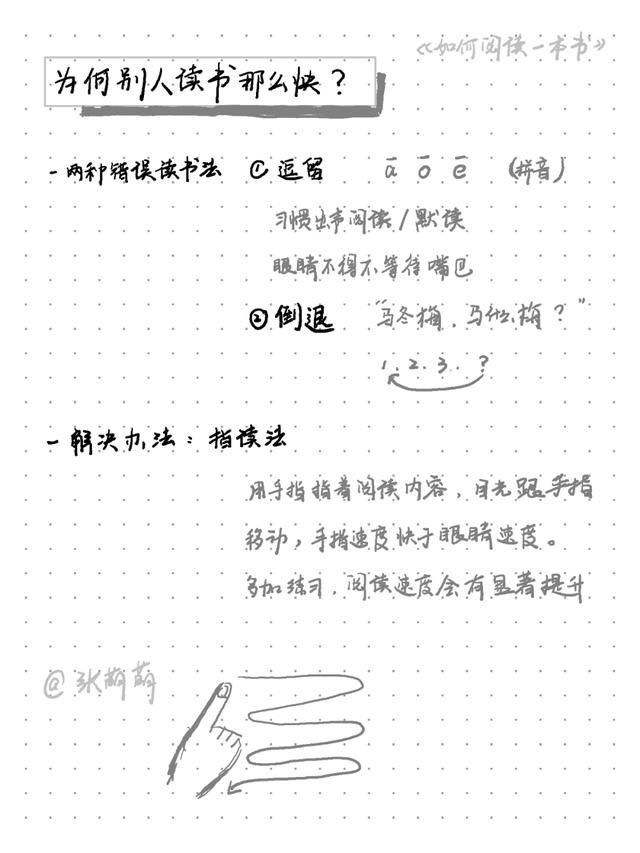 《如何阅读一本书》
为何别人读书那么快？
一两种错误读书法 ① 逗留 ā ō ē (拼音)
习惯出声阅读/默读
眼睛不得不等待嘴巴
② 倒退 "马冬梅，马什么梅？"
1.2.3..?
一解决办法：指读法
用手指指着阅读内容，目光跟手指
移动，手指速度快于眼睛速度。
多加练习，阅读速度会有显著提升
@张萌萌